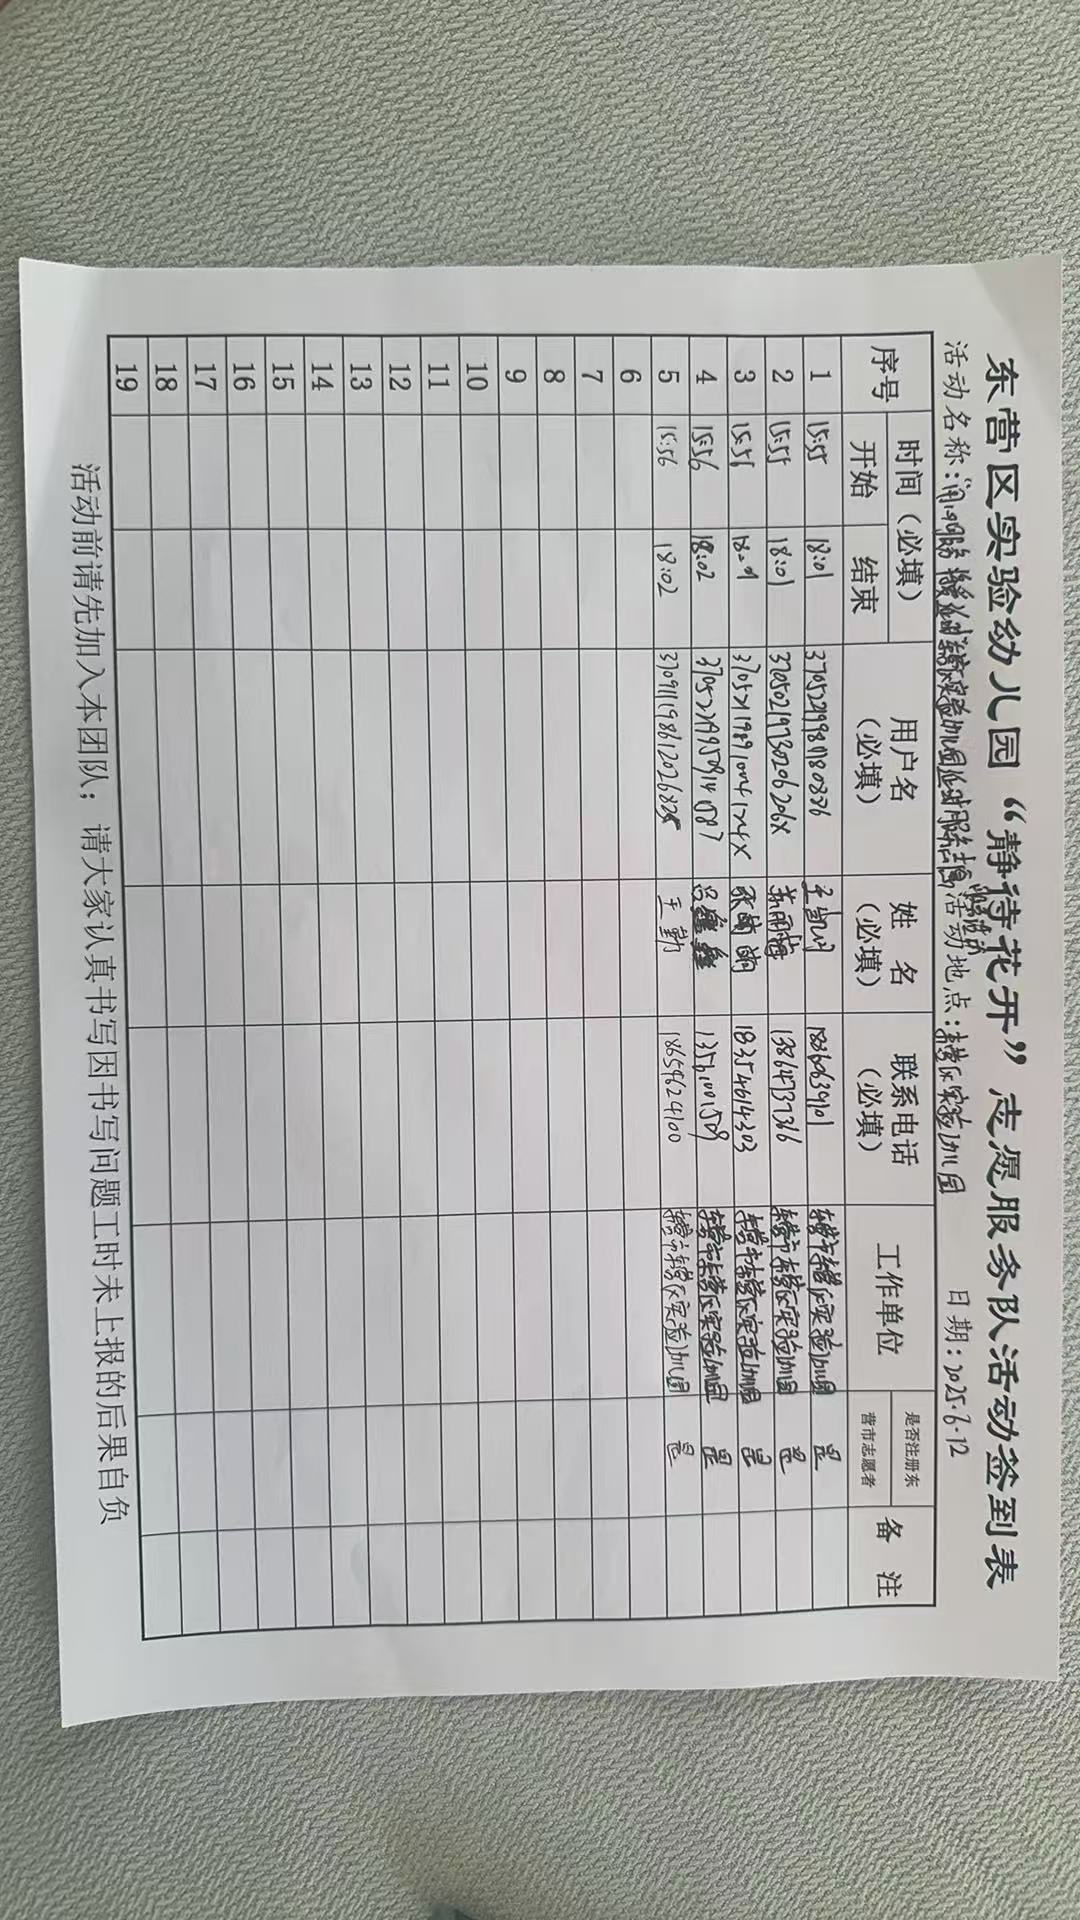 东营区实验幼儿园“静待花开”志愿服务队活动签到表
活动名称: 东营区实验幼儿园延时服务 活动地点:东营区实验幼儿园 日期:2025.6.12
序号 时间(必填) 用户名(必填) 姓 名(必填) 联系电话(必填) 工作单位 是否注册东营市志愿者 备 注
开始 结束
1 15:55 18:01 东营市东营区实验幼儿园 是
2 15:55 18:01 37050219730206206X 13864737366 东营市东营区实验幼儿园 是
3 15:56 18:01 18354614303 东营市东营区实验幼儿园 是
4 15:56 18:02 吕鑫鑫 13561001509 东营市东营区实验幼儿园 是
5 15:56 18:02 王勤 18659624100 东营市东营区实验幼儿园 是
6
7
8
9
10
11
12
13
14
15
16
17
18
19
活动前请先加入本团队;请大家认真书写因书写问题工时未上报的后果自负